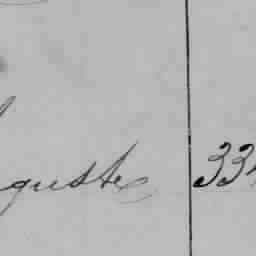 guste 33